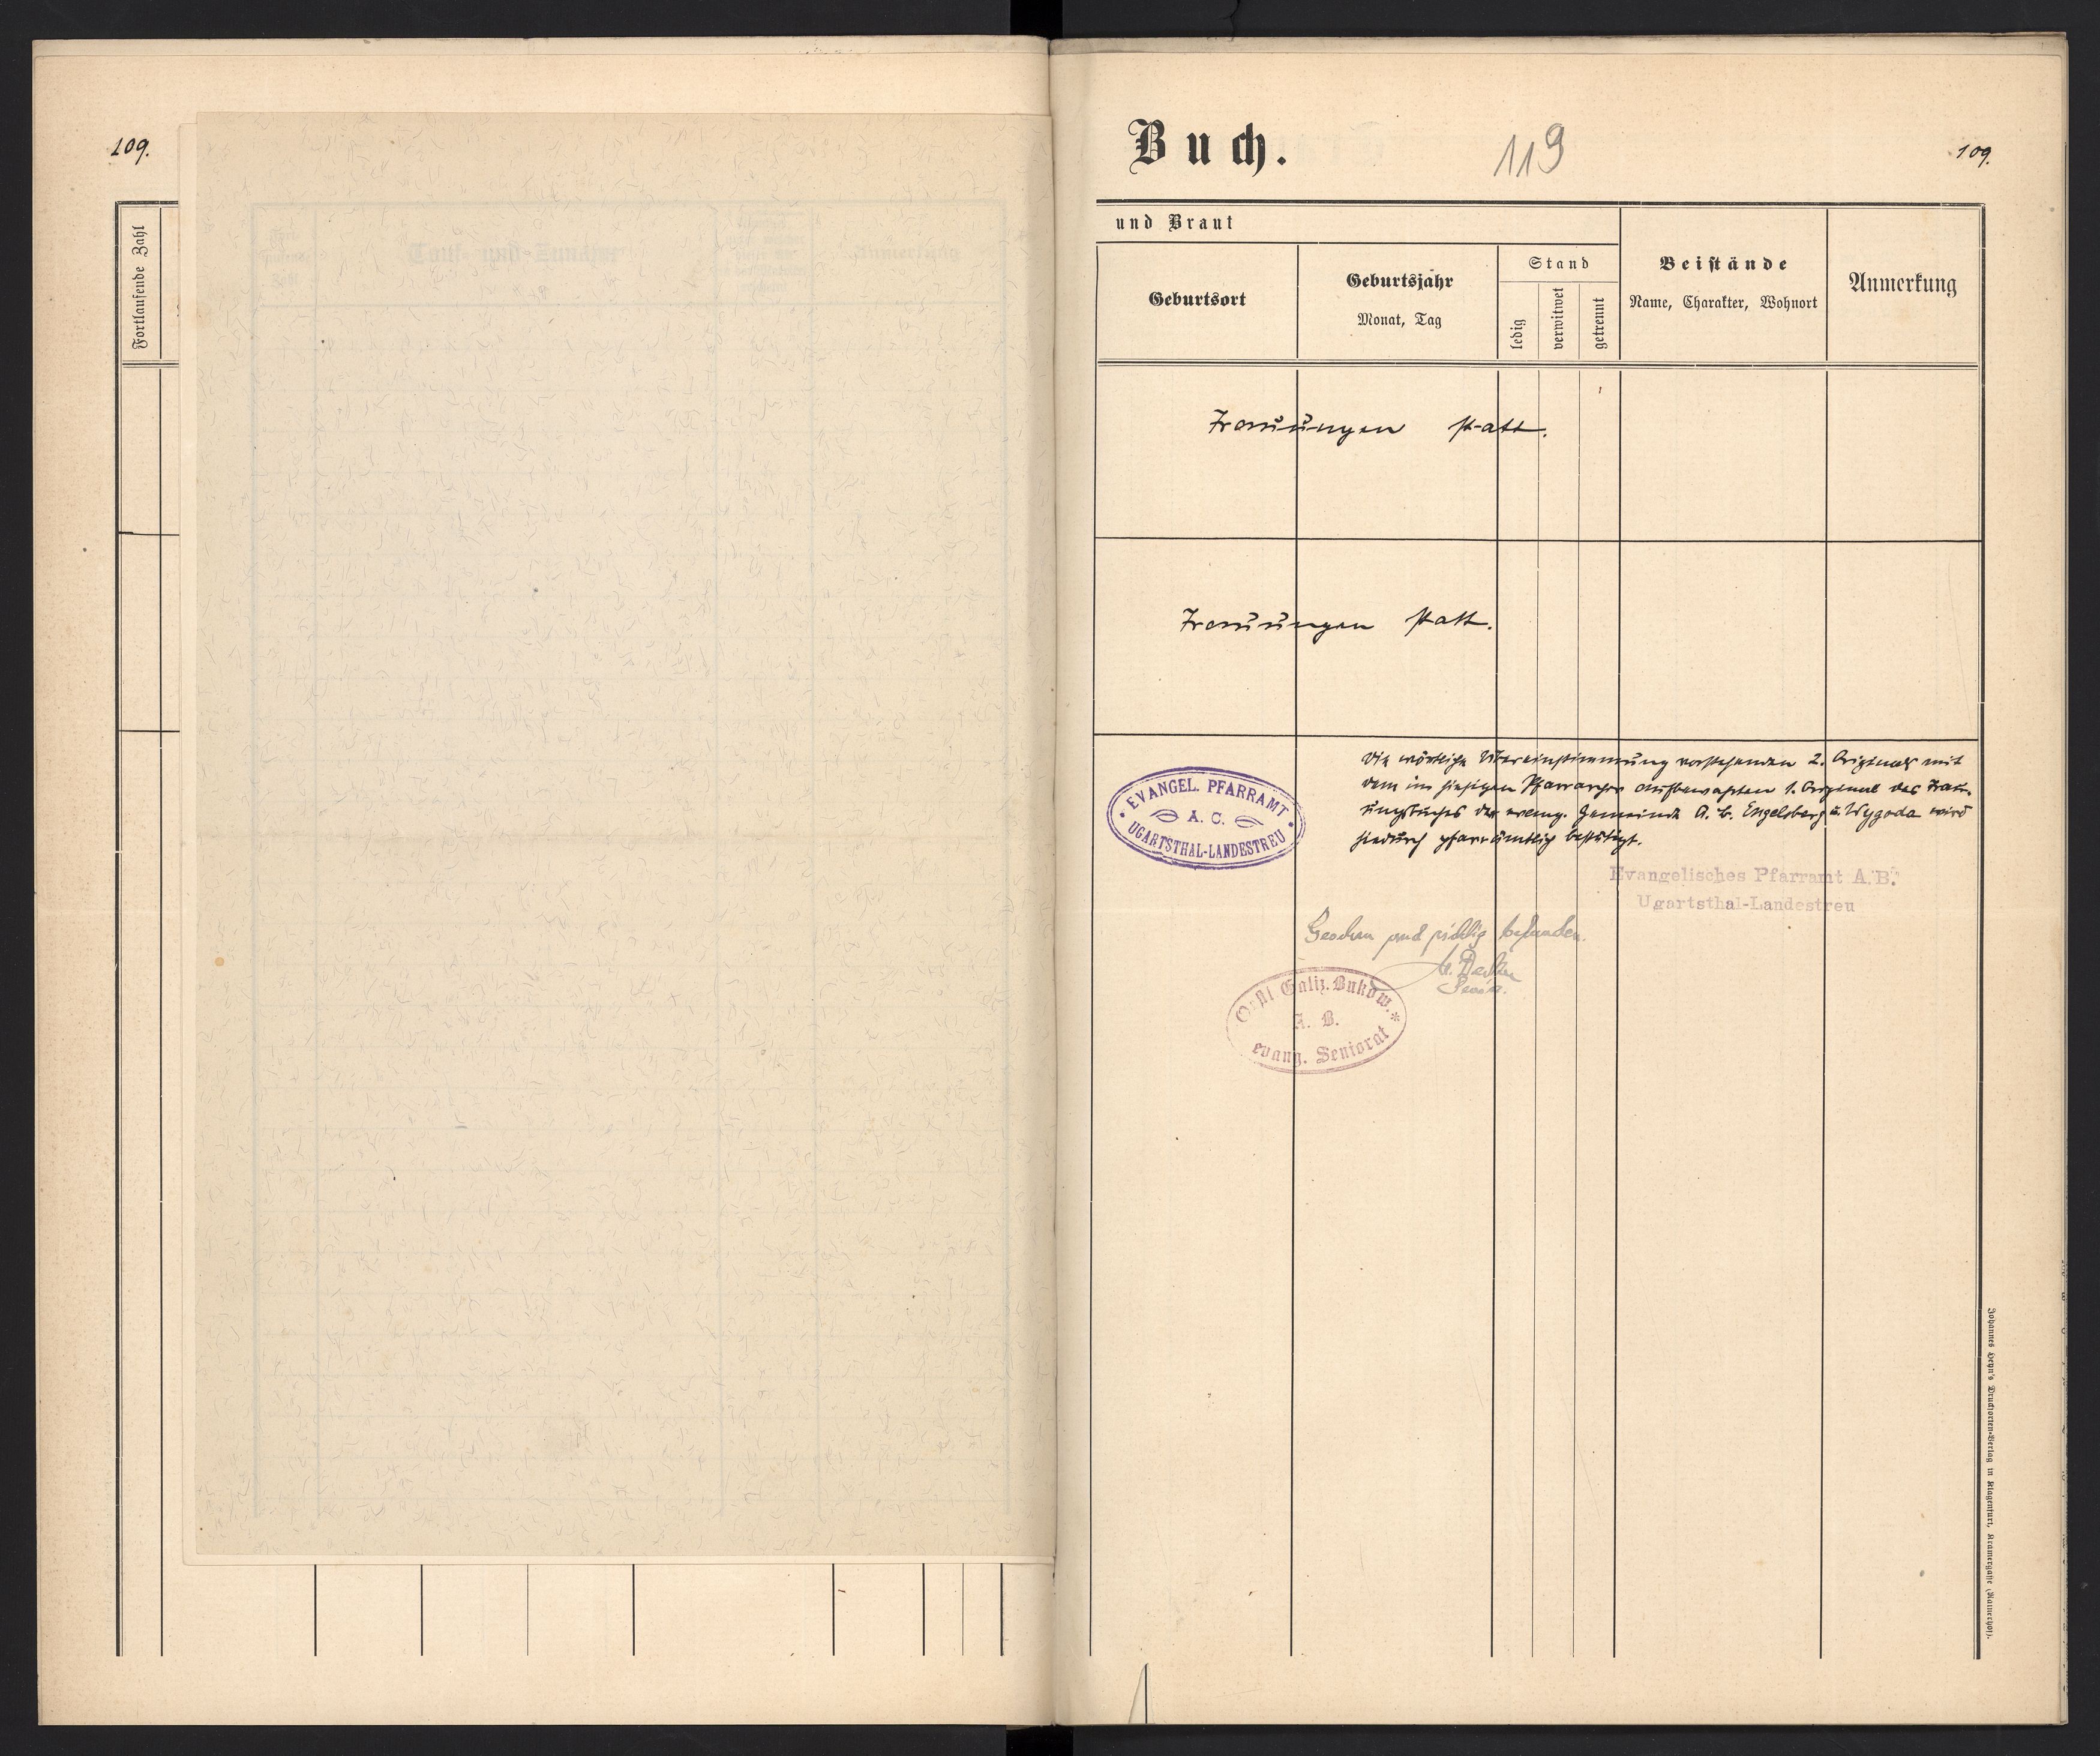 109.
Fortlaufende Zahl
Buch.
119
109.
und Braut
Geburtsort
Geburtsjahr
Monat, Tag
Stand
ledig
verwitwet
getrennt
Beistände
Name, Charakter, Wohnort
Anmerkung
Trauungen statt.
Trauungen statt.
Die wörtliche Übereinstimmung vorstehenden 2. Originals mit
dem im hiesigen Pfarrarchiv aufbewahrten 1. Original des Trau-
ungsbuches der evang. Gemeinde A. B. Engelsberg u. Wygoda wird
hiedurch pfarrämtlich bestätigt.
EVANGEL. PFARRAMT
A. C.
UGARTSTHAL-LANDESTREU
Evangelisches Pfarramt A. B.
Ugartsthal-Landestreu
Gesehen und richtig befunden.
Galiz. Bukow.
A. B.
evang. Seniorat
Johannes Heyn's Drucksorten-Verlag in Klagenfurt, Kramergasse